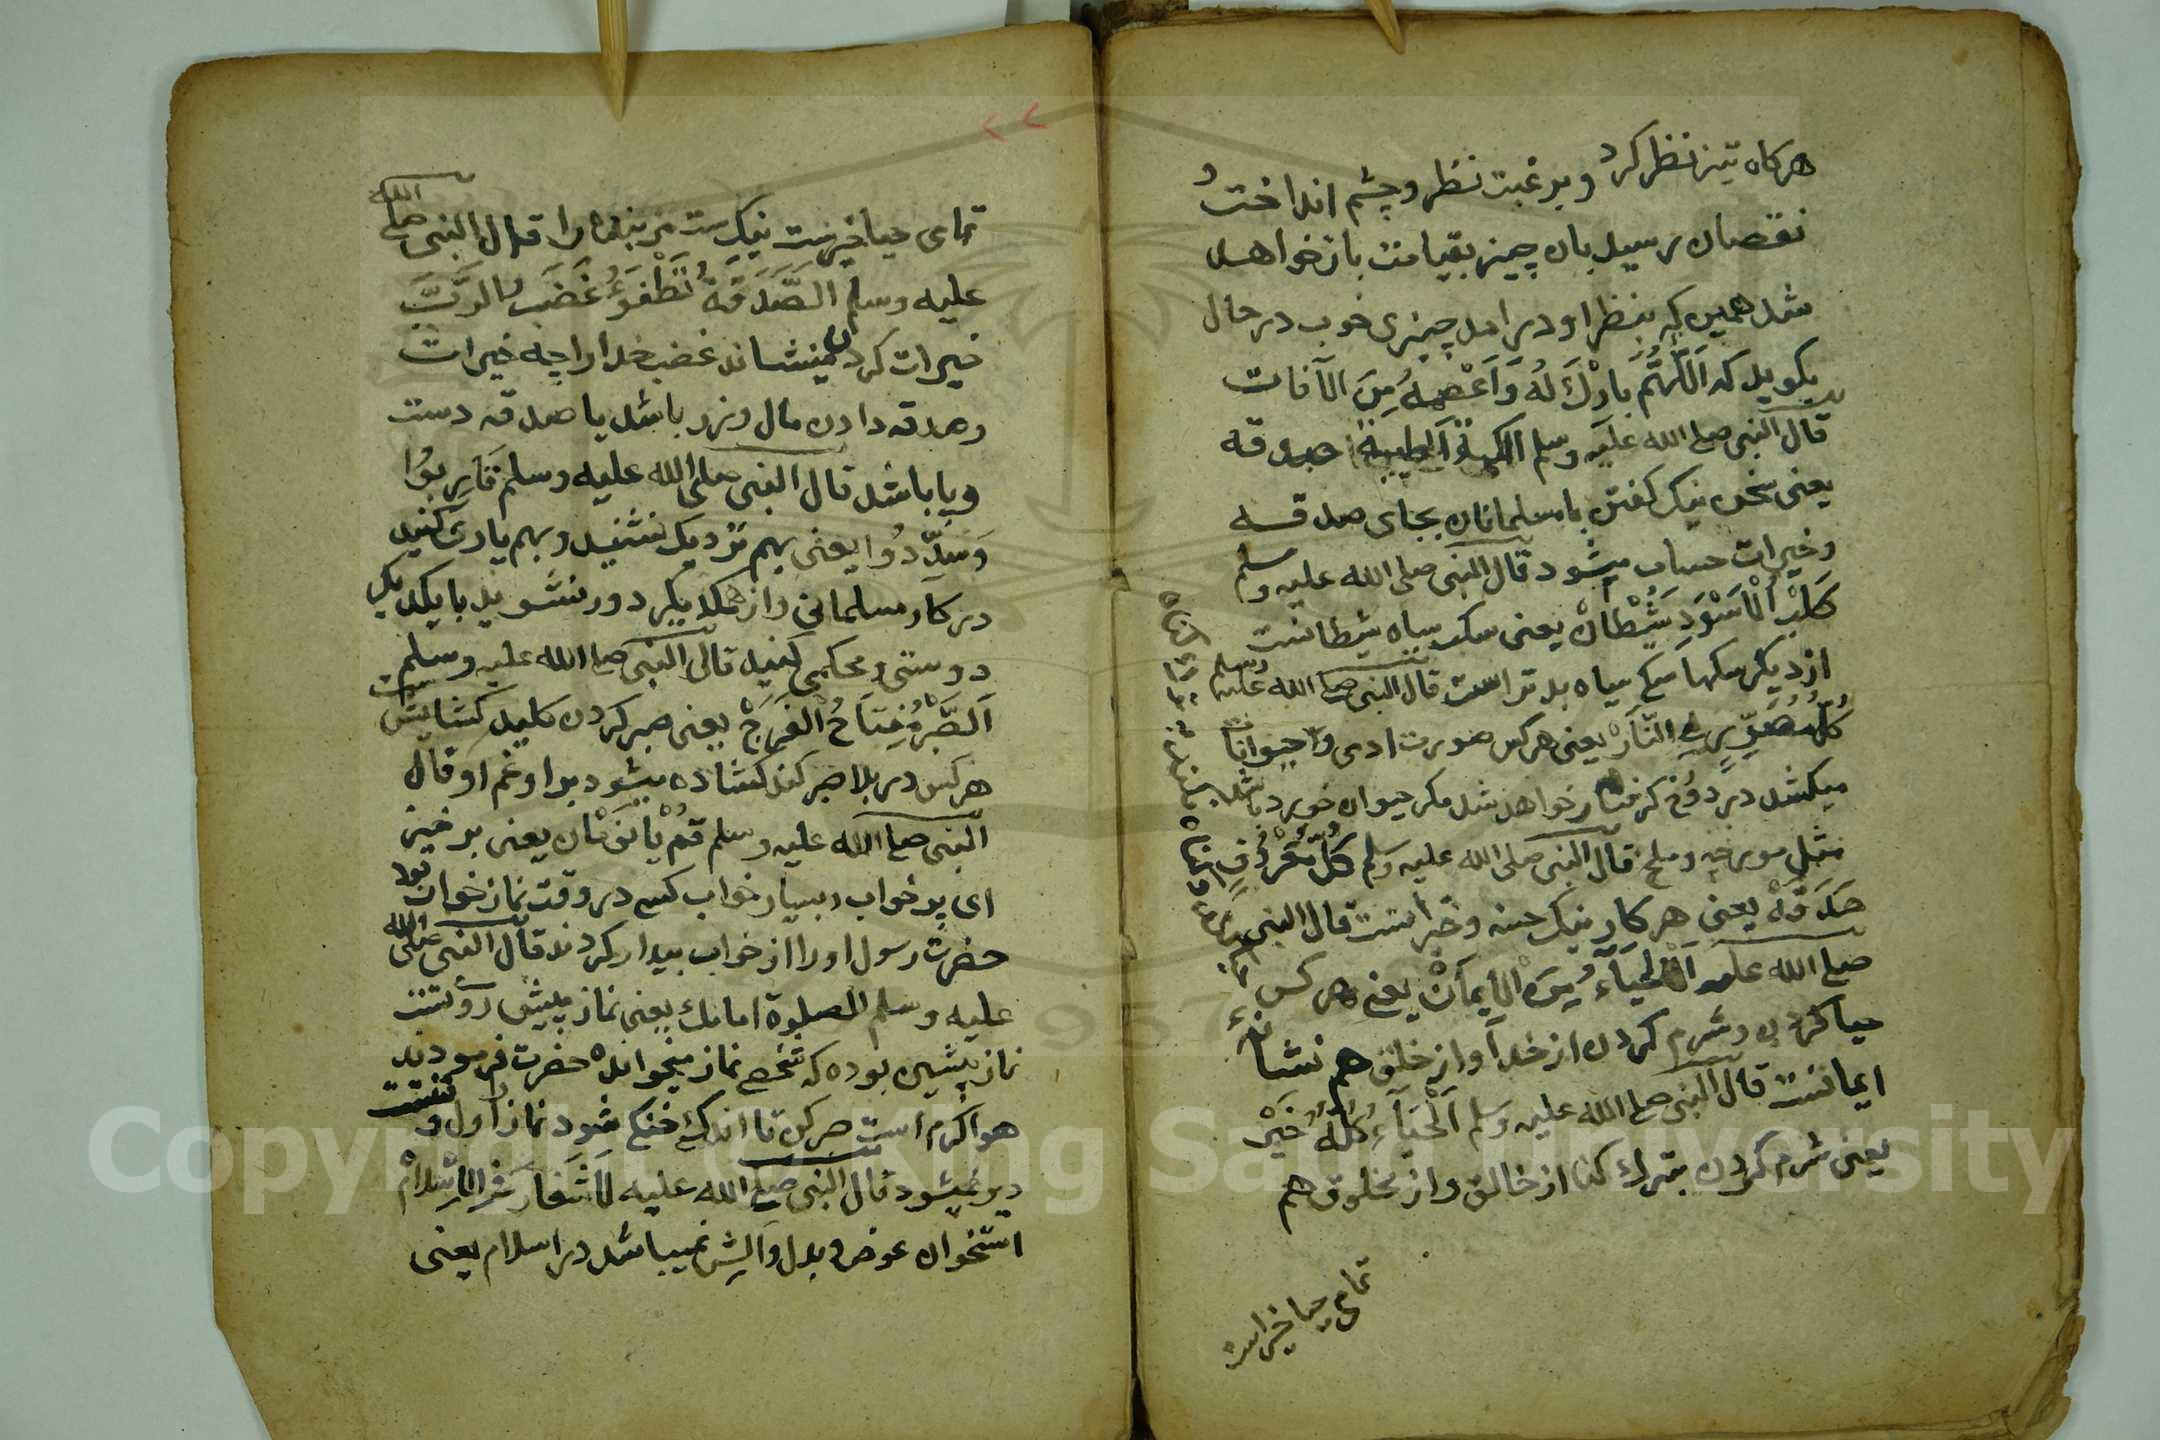 هرکاه تیز نظر کرد و برغبت نظر و چشم انداخت و
نقصان رسید بان چیز بقیامت باز خواهد
شد همین که بنظر او در امد چیزی خوب در حال
بکوید که اَللّٰهُمَّ بارْكَ لَهُ وَاَعْصِمْهُ مِنَ الآفات
قال النبی صلع الله علیه وسلم الکلمةُ الطیبةُ صدقه
یعنی سخن نیک کفتن بامسلمانان بجای صدقه
وخیرات حساب میشود قال النبی صلی الله علیه وسلم
کَلْبُ الْاَسْوَدِ شَیْطَانْ یعنی سک سیاه شیطانست
از دیکر سکها سک سیاه بدتر است قال النبی صلع الله علیه وسلم
کُلُّ مُصَوِّرٍ فِی النَّارْ یعنی هرکس صورت ادمی و حیوانات
میکشد در دوزخ کرفتار خواهد شد مکر حیوان خورد باشد
مثل مورچه وملخ قال النبی صلی الله علیه وسلم کُلُّ مَعْرُوفٍ
صَدَقَةْ یعنی هر کار نیک حسنه وخیراتست قال النبی
صلع الله علیه اَلْحَیَآءُ مِنَ الْاِیمَانْ یعنی هر کس
حیا کردن و شرم کردن از خدا و از خلق هم نشانهٔ
ایمانست قال النبی صلع الله علیه وسلم اَلْحَیَآءُ کُلُّهُ خَیْرْ
یعنی شرم کردن بترك کنا از خالق واز مخلوق هم
تمامی حیا خیراست
٢٢
تمامی حیا خیرست نیکست مر بنده را قال النبی صلع الله
علیه وسلم الصَّدَقَةُ تُطْفِؤُ غَضَبَ الرَّبِّ
خیرات کردن مینشاند غضب خدا را چه خیرات
وصدقه دادن مال وزر باشد یا صدقه دست
ویا پا باشد قال النبی صلی الله علیه وسلم قَارِبُوا
وَسَدِّدُوا یعنی بهم نزدیک نشنید و بهم یاری کنید
در کار مسلمانی و از همکدیکر دور نشوید با یکدیکر
دوستی و محکمی کنید قال النبی صلع الله علیه وسلم
اَلصَّبْرُ مِفْتَاحُ الْفَرَجْ یعنی صبر کردن کلید کشایش است
هر کس در بلا صبر کند کشاده میشود براو غم او قال
النبی صلع الله علیه وسلم قُمْ یَا نَوْمَان یعنی بر خیز
ای پر خواب و بسیار خواب کسی در وقت نماز خواب بود
حضرت رسول اورا از خواب بیدار کردند قال النبی صلی الله
علیه وسلم الصلوة امامك یعنی نماز پیش روتست
نماز پیشین بوده که شخصی نماز میخوانده حضرت فرمودند
هوا کرم است صبر کن تا اندک خنک شود نماز اول وقتست
دیر نمیشود قال النبی صلع الله علیه لَا شَغَارَ فِی الْاِسْلامْ
استخوان عوض و بدل والش نمیباشد در اسلام یعنی